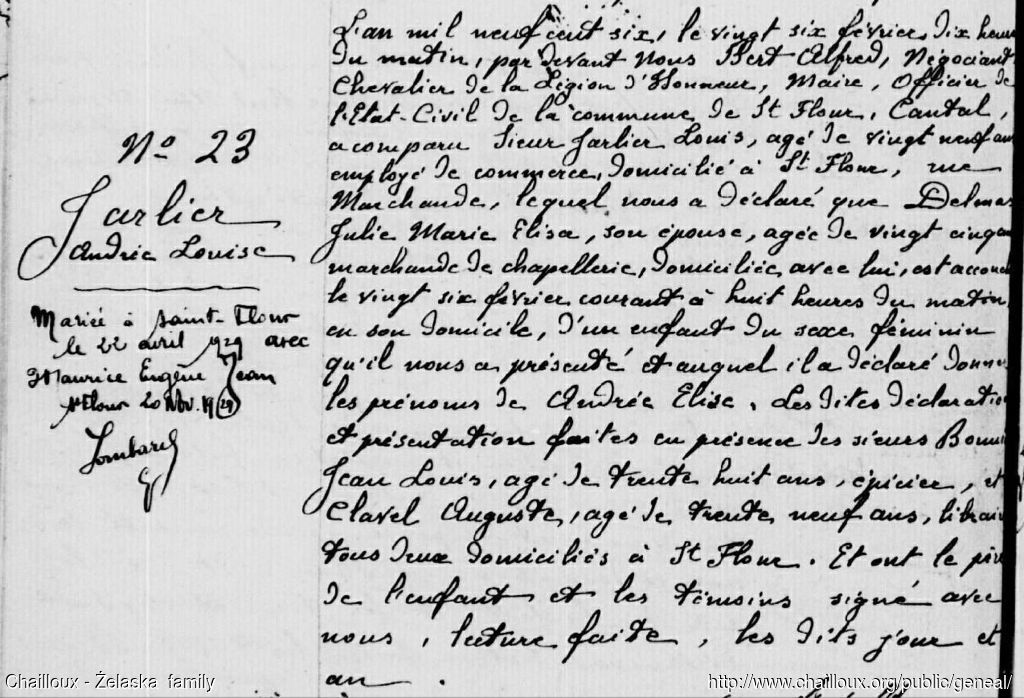 No 23
Jarlier
Andrée Louise
Mariée à Saint-Flour
le 22 avril 1929 avec
Maurice Eugène Jean
St Flour 20 Nov. 1929
L'an mil neuf cent six, le vingt six février, dix heures
du matin, par devant Nous Bert Alfred, Négociant
Chevalier de la Légion d'Honneur, Maire, Officier de
l'Etat-Civil de la commune de St Flour, Cantal,
a comparu Sieur Jarlier Louis, agé de vingt neuf ans
employé de commerce, domicilié à St Flour, rue
Marchande, lequel nous a déclaré que Delmas
Julie Marie Elisa, son épouse, agée de vingt cinq ans
marchande de chapellerie, domiciliée avec lui, est accouch
le vingt six février courant à huit heures du matin,
en son domicile, d'un enfant du sexe féminin
qu'il nous a présenté et auquel il a déclaré donner
les prénoms de Andrée Elise. Les dites déclaration
et présentation faites en présence des sieurs
Jean Louis, agé de trente huit ans, épicier, et
Clavel Auguste, agé de trente neuf ans, librair
tous deux domiciliés à St Flour. Et ont le père
de l'enfant et les témoins signé avec
nous, lecture faite, les dits jour et
an.
Chailloux - Żelaska family
http://www.chailloux.org/public/geneal/